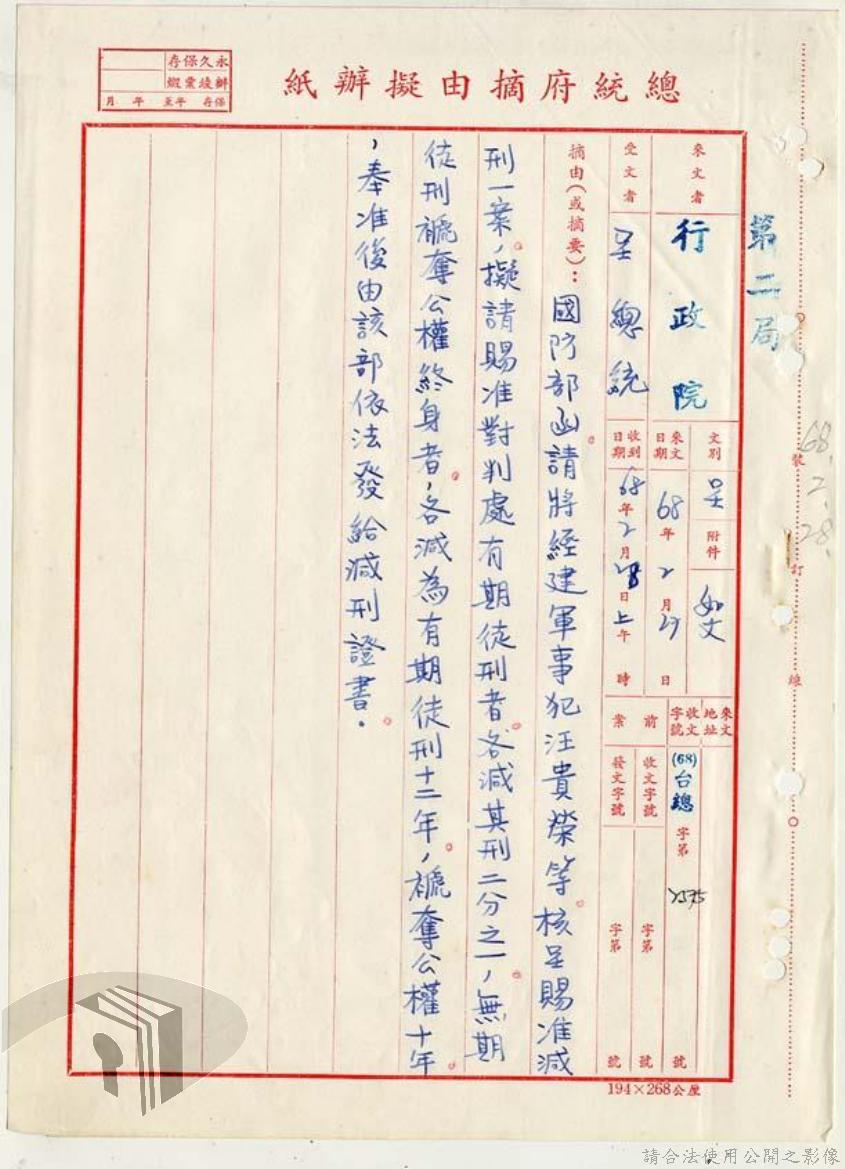 總統府摘由擬辦紙
永久保存
保存 年至 年 月
第二局
68.2.28.
裝 訂 線
來文者 行政院
文別 呈 附件 如文
來文日期 68年2月27日
來文地址
收文字號 (68)台總 字第 2575 號
受文者 呈總統
收到日期 68年2月28日上午 時
前案
收文字號 字第 號
發文字號 字第 號
摘由(或摘要): 國防部函請將經建軍事犯汪貴榮等。核呈賜准減
刑一案,擬請賜准對判處有期徒刑者。各減其刑二分之一,無期
徒刑褫奪公權終身者,各減為有期徒刑十二年,褫奪公權十年
,奉准後由該部依法發給減刑證書。
194×268公厘
請合法使用公開之影像